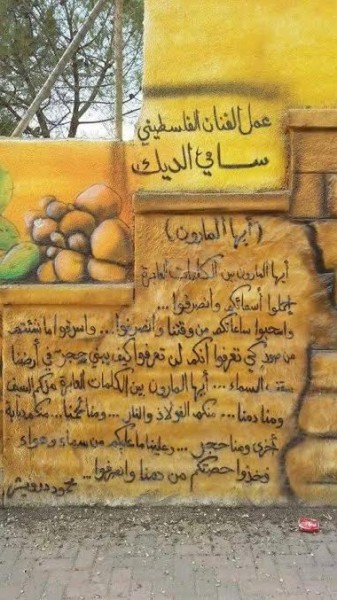 عمل الفنان الفلسطيني
ساقي الديك
(أيها المارون)
أيها المارون بين الكلمات العابرة
احملوا أسمائكم وانصرفوا...
واسحبوا ساعاتكم من وقتنا وانصرفوا... واسرقوا ما شئتم
من صور كي تعرفوا أنكم لن تعرفوا كيف يبني حجر في أرضنا
سقف السماء... أيها المارون بين الكلمات العابرة منكم السيف
ومنا دمنا... منكم الفولاذ والنار... ومنا لحمنا... منكم دبابة
أخرى ومنا حجر... وعلينا ما عليكم من سماء وهواء
فخذوا حصتكم من دمنا وانصرفوا...
محمود درويش